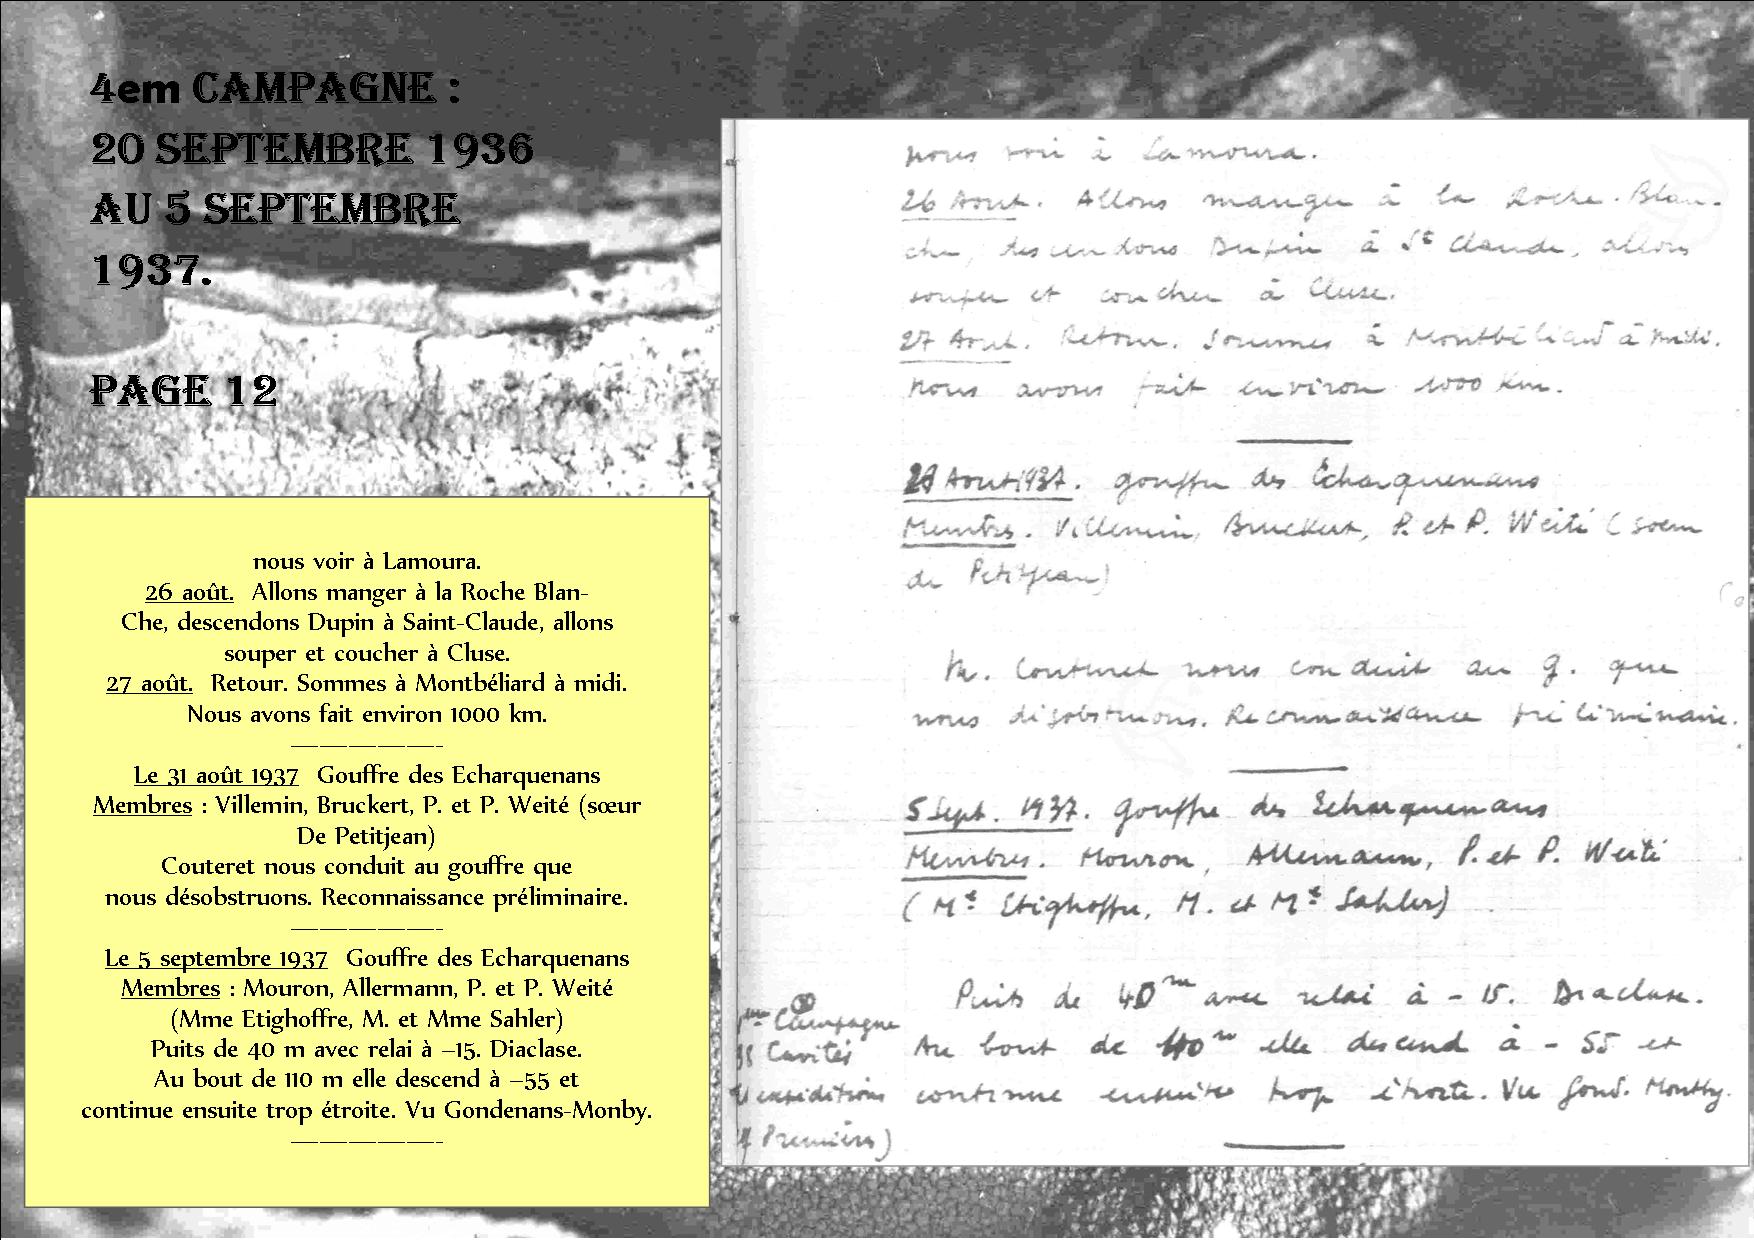 4em CAMPAGNE :
20 SEPTEMBRE 1936
AU 5 SEPTEMBRE
1937.
PAGE 12
nous voir à Lamoura.
26 août. Allons manger à la Roche Blan-
Che, descendons Dupin à Saint-Claude, allons
souper et coucher à Cluse.
27 août. Retour. Sommes à Montbéliard à midi.
Nous avons fait environ 1000 km.
Le 31 août 1937 Gouffre des Echarquenans
Membres : Villemin, Bruckert, P. et P. Weité (sœur
De Petitjean)
Couteret nous conduit au gouffre que
nous désobstruons. Reconnaissance préliminaire.
Le 5 septembre 1937 Gouffre des Echarquenans
Membres : Mouron, Allermann, P. et P. Weité
(Mme Etighoffre, M. et Mme Sahler)
Puits de 40 m avec relai à –15. Diaclase.
Au bout de 110 m elle descend à –55 et
continue ensuite trop étroite. Vu Gondenans-Monby.
nous voir à Lamoura.
26 Aout. Allons manger à la Roche-Blan-
che, descendons Dupin à St Claude, allons
souper et coucher à Cluse.
27 Aout. Retour. Sommes à Montbéliard à midi.
Nous avons fait environ 1000 Km.
Aout 1937. Gouffre des Echarquenans
Membres. Villemin, Bruckert, P. et P. Weité (soeur
de Petitjean)
M. Couteret nous conduit au g. que
nous désobstruons. Reconnaissance préliminaire.
5 Sept. 1937. Gouffre des Echarquenans
Membres. Mouron, Allemann, P. et P. Weité
(Me Etighoffre, M. et Me Sahler)
Puits de 40m avec relai à - 15. Diaclase.
Au bout de 110m elle descend à - 55 et
continue ensuite trop étroite. Vu Gond. Montby.
Campagne
Cavités
expéditions
Premières)